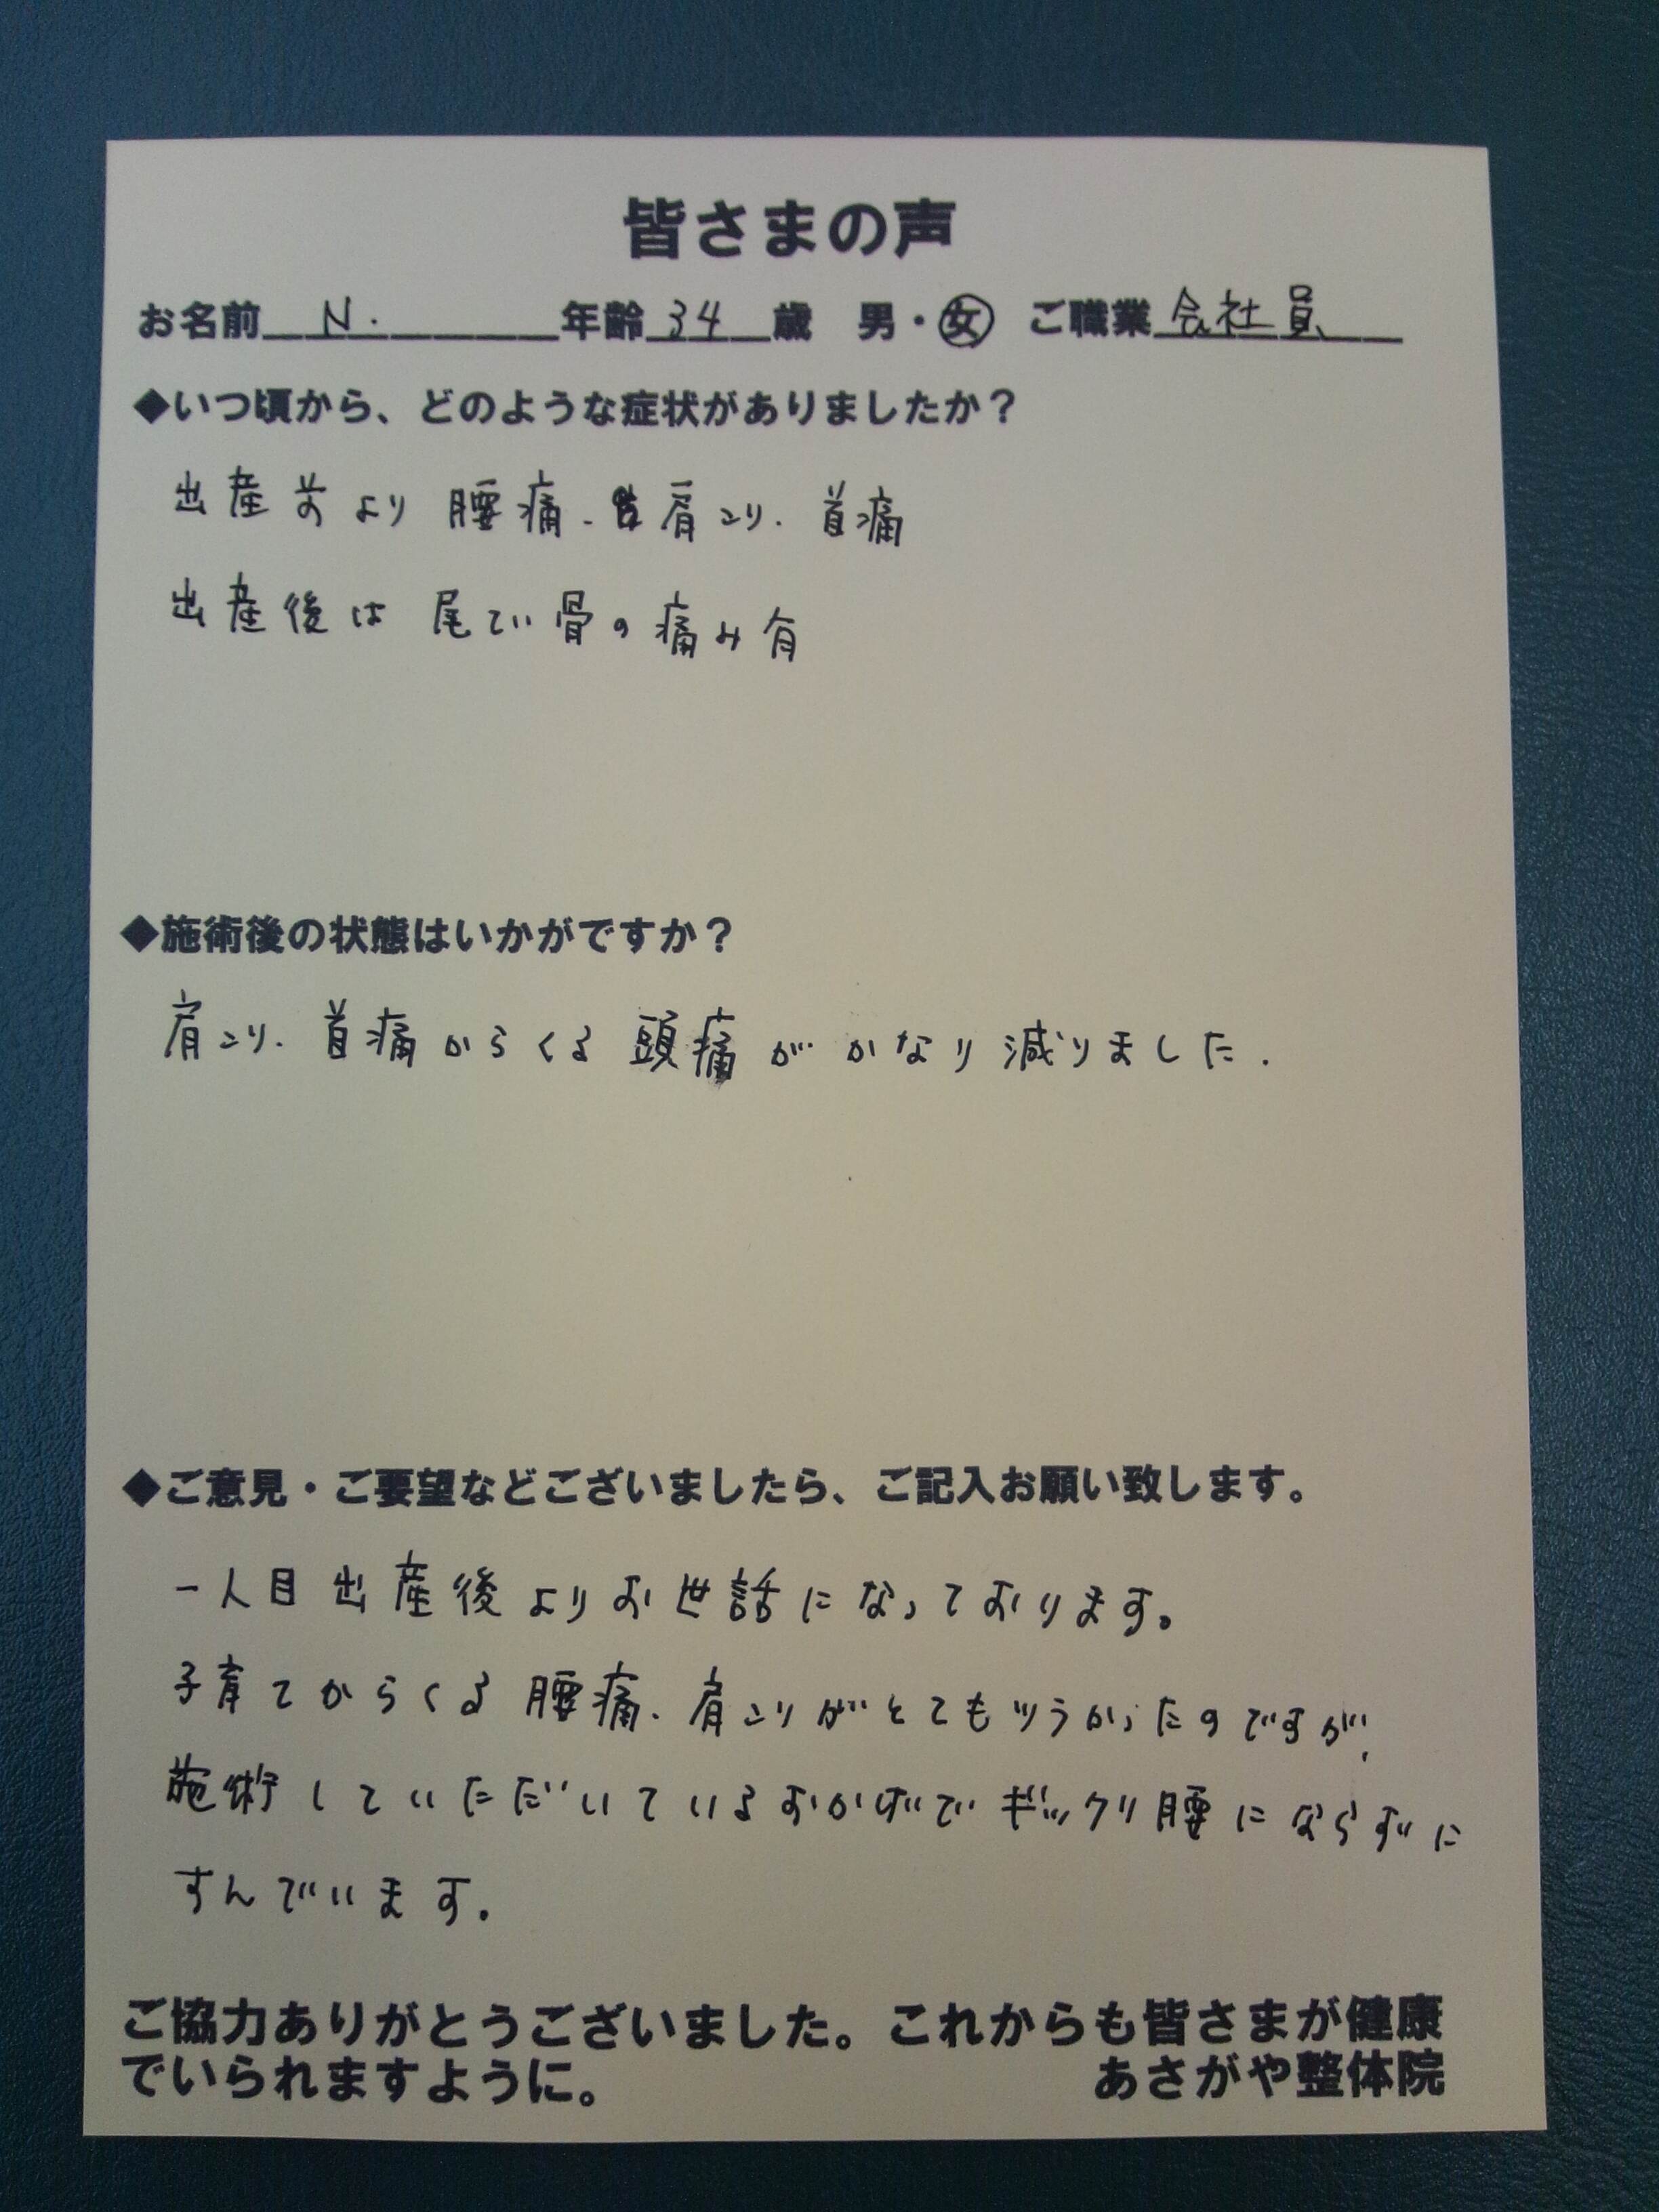 皆さまの声
お名前 N. 年齢 34 歳 男・女 ご職業 会社員
◆いつ頃から、どのような症状がありましたか？
出産前より 腰痛.肩こり.首痛
出産後は 尾てい骨の痛み有
◆施術後の状態はいかがですか？
肩こり.首痛からくる頭痛がかなり減りました.
◆ご意見・ご要望などございましたら、ご記入お願い致します。
一人目出産後よりお世話になっております。
子育てからくる腰痛.肩こりがとてもツラかったのですが、
施術していただいているおかげでギックリ腰にならずに
すんでいます.
ご協力ありがとうございました。これからも皆さまが健康
でいられますように。 あさがや整体院